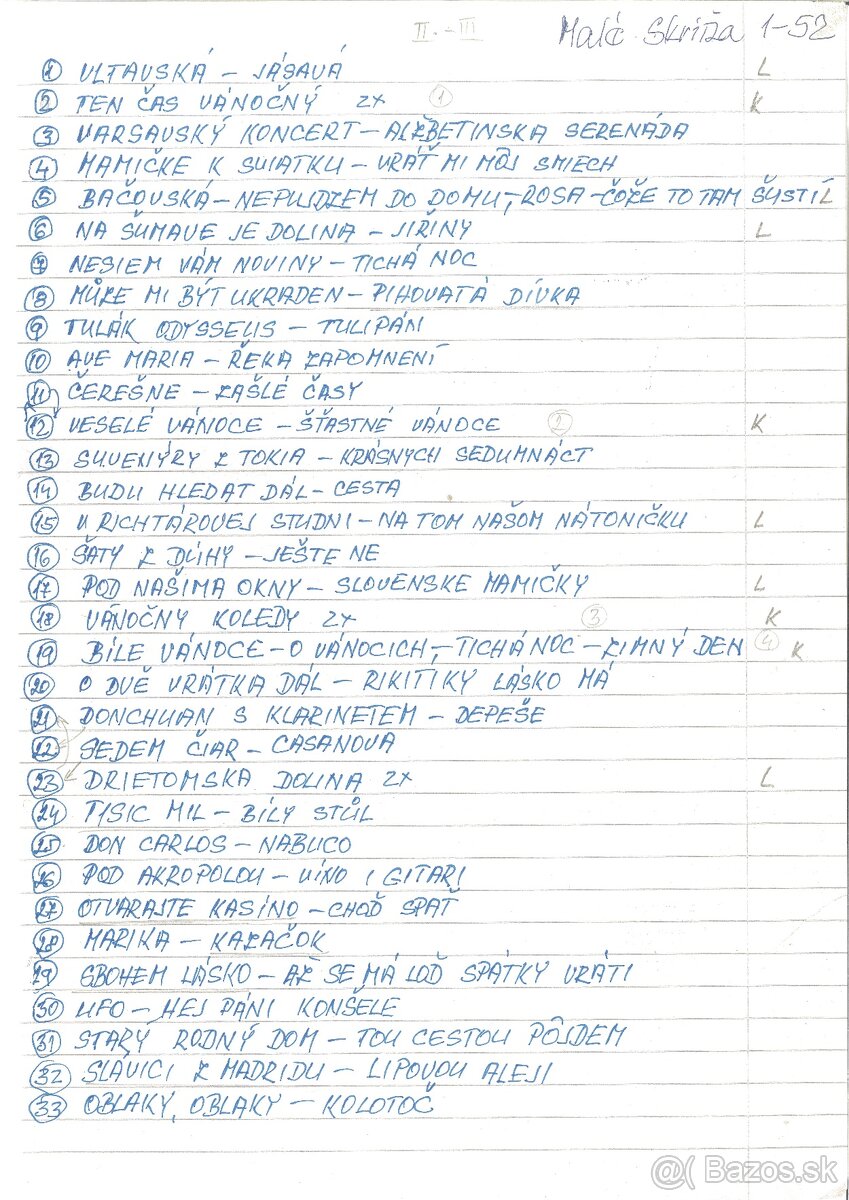 II.-III Malé Skriňa 1-52
1 VLTAVSKÁ - JÁSAVÁ L
2 TEN ČAS VÁNOČNÝ 2x 1 K
3 VARŠAVSKÝ KONCERT - ALŽBETINSKA SERENÁDA
4 MAMIČKE K SVIATKU - VRÁŤ MI MÔJ SMIECH
5 BAČOVSKÁ - NEPUJDZEM DO DOMU, - ROSA - ČOŽE TO TAM ŠUSTÍ L
6 NA ŠUMAVE JE DOLINA - JIŘINY L
7 NESIEM VÁM NOVINY - TICHÁ NOC
8 MŮŽE MI BÝT UKRADEN - PIHOVATÁ DÍVKA
9 TULÁK ODYSSEUS - TULIPÁN
10 AVE MARIA - ŘEKA ZAPOMNENÍ
11 ČEREŠNE - ZAŠLÉ ČASY
12 VESELÉ VÁNOCE - ŠŤASTNÉ VÁNOCE 2 K
13 SUVENÝRY Z TOKIA - KRÁSNYCH SEDUMNÁCT
14 BUDU HLEDAT DÁL - CESTA
15 U RICHTÁROVEJ STUDNI - NA TOM NAŠOM NÁTONIČKU L
16 ŠATY Z DÚHY - JEŠTE NE
17 POD NAŠIMA OKNY - SLOVENSKE MAMIČKY L
18 VÁNOČNY KOLEDY 2x 3 K
19 BÍLE VÁNOCE - O VÁNOCICH, - TICHÁ NOC - ZIMNÝ DEN 4 K
20 O DVĚ VRÁTKA DÁL - RIKITIKY LÁSKO MÁ
21 DONCHUAN S KLARINETEM - DEPEŠE
22 SEDEM ČIAR - CASANOVA
23 DRIETOMSKA DOLINA 2x L
24 TISIC MIL - BÍLY STŮL
25 DON CARLOS - NABUCO
26 POD AKROPOLOU - VÍNO I GITARI
27 OTVARAJTE KASÍNO - CHOĎ SPAŤ
28 MARIKA - KAZAČOK
29 SBOHEM LÁSKO - AŽ SE MÁ LOĎ SPÁTKY VRÁTI
30 UFO - HEJ PÁNI KONŠELE
31 STARÝ RODNÝ DOM - TOU CESTOU PÔJDEM
32 SLÁVICI Z MADRIDU - LIPOVOU ALEJI
33 OBLAKY, OBLAKY - KOLOTOČ
@( Bazos.sk